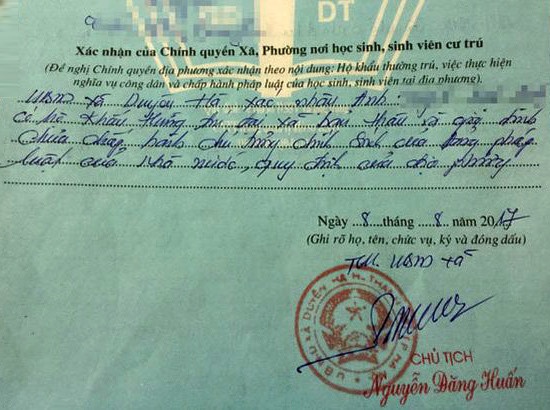 DT
Xác nhận của Chính quyền Xã, Phường nơi học sinh, sinh viên cư trú
(Đề nghị Chính quyền địa phương xác nhận theo nội dung: Hộ khẩu thường trú, việc thực hiện
nghĩa vụ công dân và chấp hành pháp luật của học sinh, sinh viên tại địa phương).
UBND xã Duyên Hà xác nhận Anh:
có hộ khẩu thường trú tại xã bản thân và gia đình
chưa chấp hành chủ trương chính sách của Đảng pháp
luật của nhà nước, quy định của địa phương
Ngày 8 tháng 8 năm 2017
(Ghi rõ họ, tên, chức vụ, ký và đóng dấu)
TM. UBND xã
CHỦ TỊCH
Nguyễn Đăng Huấn